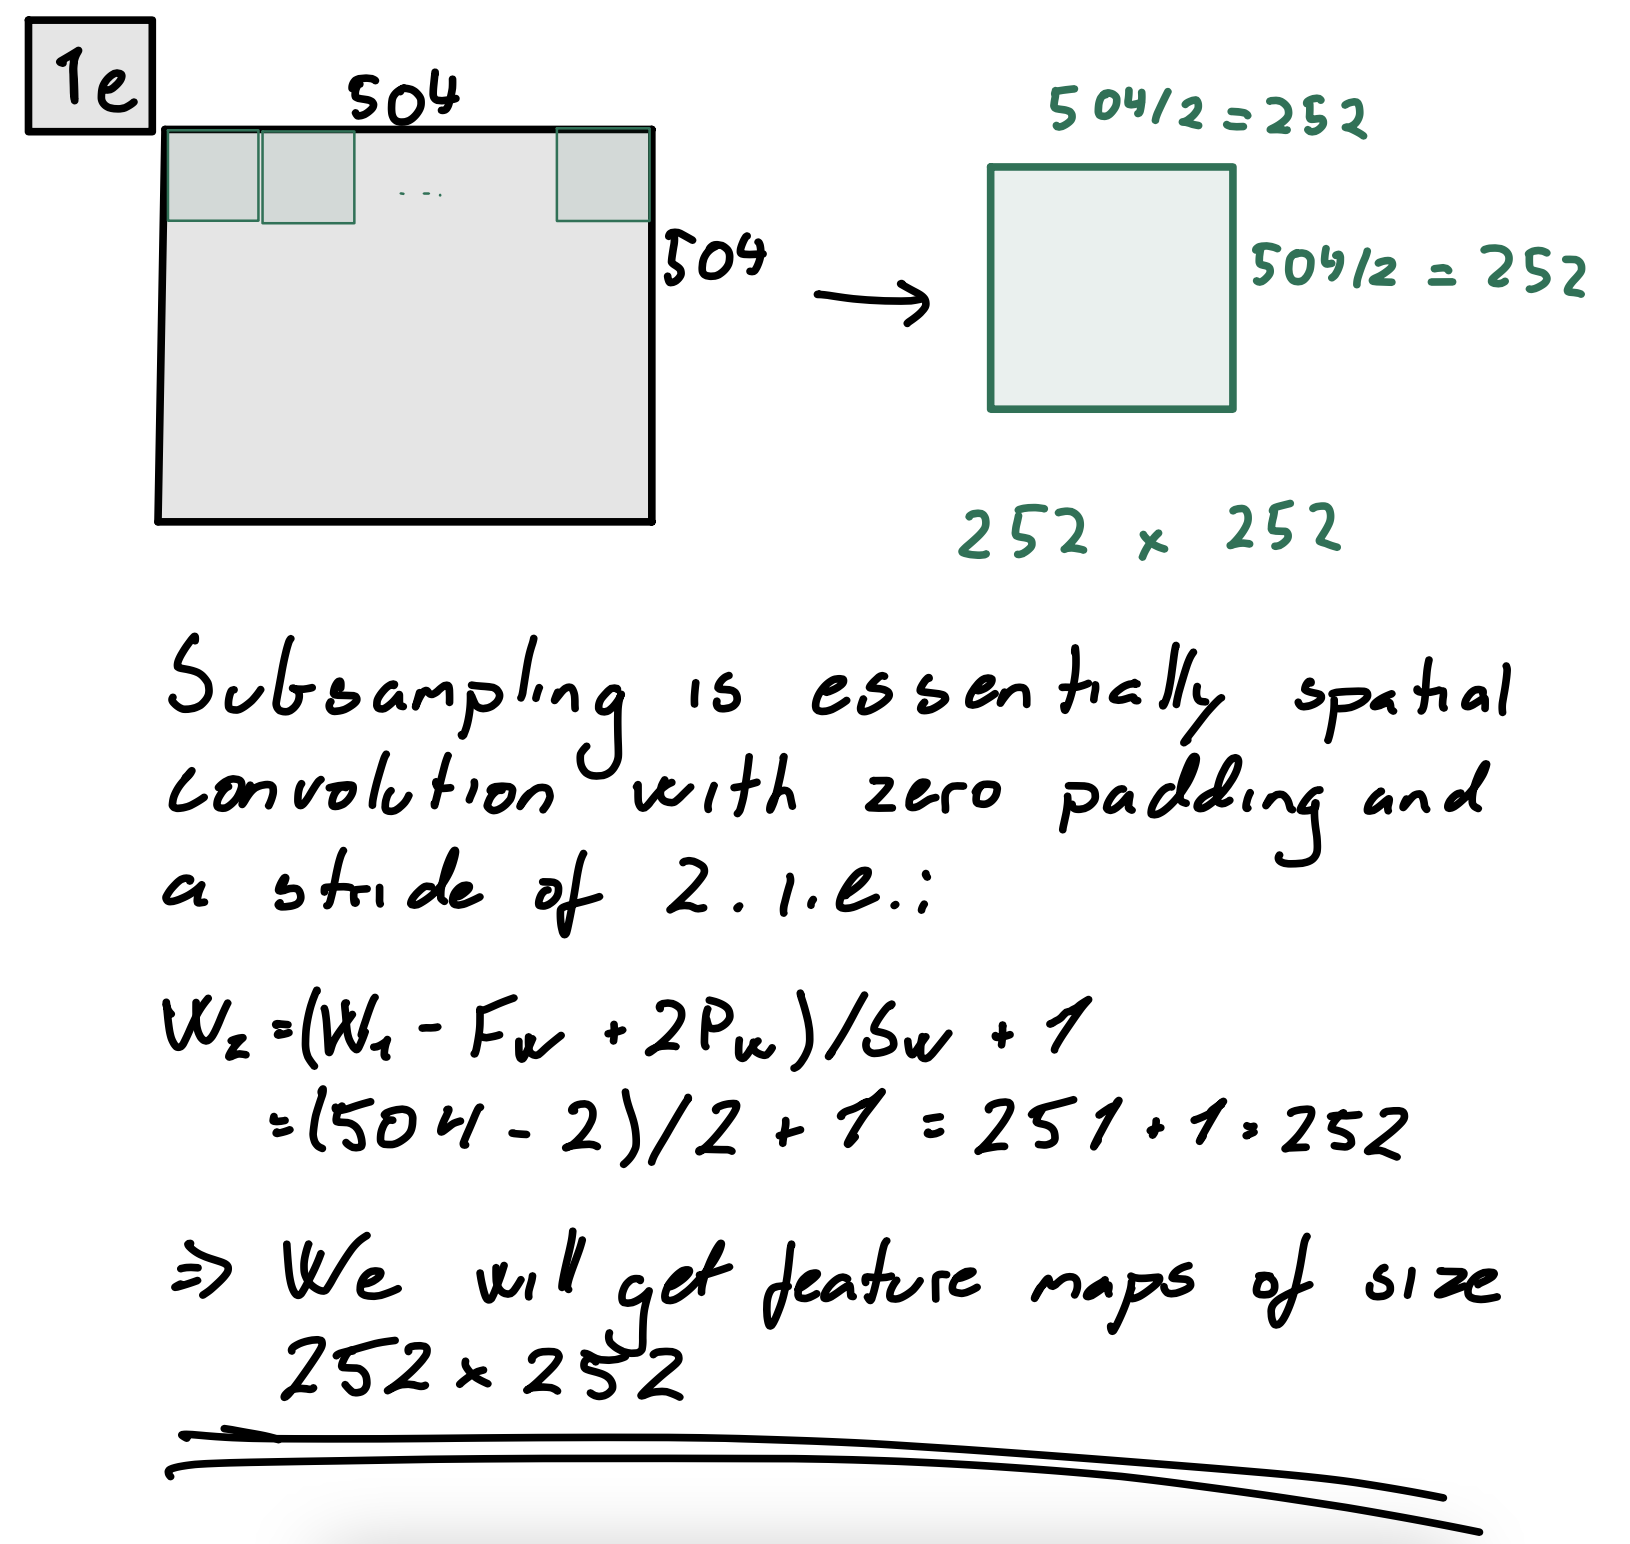 1e
504
504
504/2 = 252
504/2 = 252
252 x 252
Subsampling is essentially spatial
convolution with zero padding and
a stride of 2. i.e.:
W₂ = (W₁ - F_W + 2P_W)/S_W + 1
= (504 - 2)/2 + 1 = 251 + 1 = 252
⇒ We will get feature maps of size
252 x 252